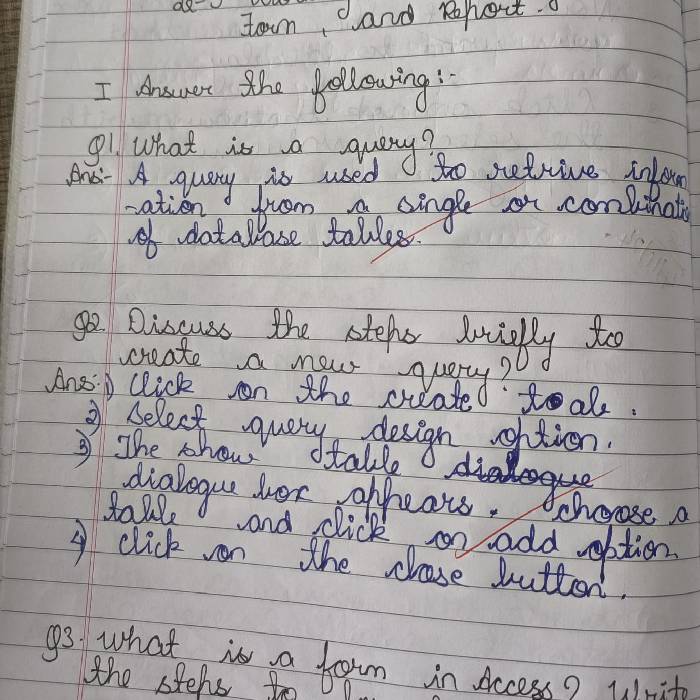 Form, and Report.
I Answer the following:-
Q1. What is a query?
Ans:- A query is used to retrive inform
-ation from a single or combinatio
of database tables.
Q2. Discuss the steps briefly to
create a new query?
Ans:- 1) Click on the create toab.
2) Select query design option.
3) The show table dialogue
dialogue box appears. Choose a
table and click on add option
4) Click on the close button.
Q3. What is a form in Access? Write
the steps to